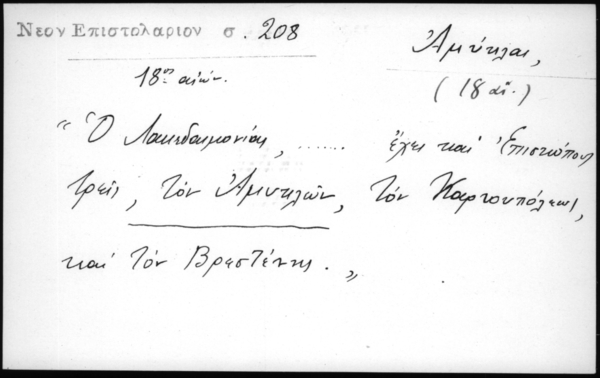 Νεον Επιστολαριον σ. 208
Ἀμύκλαι,
18ος αἰών.
(18 αἰ.)
"Ὁ Λακεδαιμονίας, ...... ἔχει καὶ Ἐπισκόπους
τρεῖς, τὸν Ἀμυκλῶν, τὸν Καρτουπόλεως,
καὶ τὸν Βρεστένης."